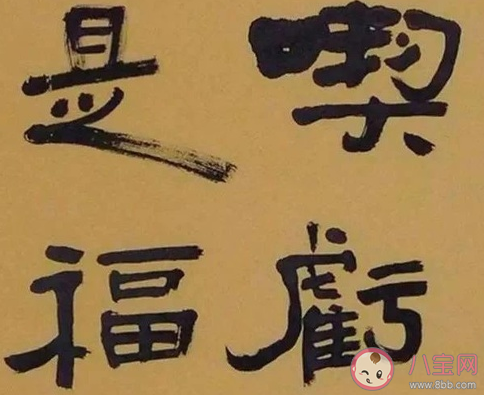 喫虧
是福
八宝网
www.8bb.com